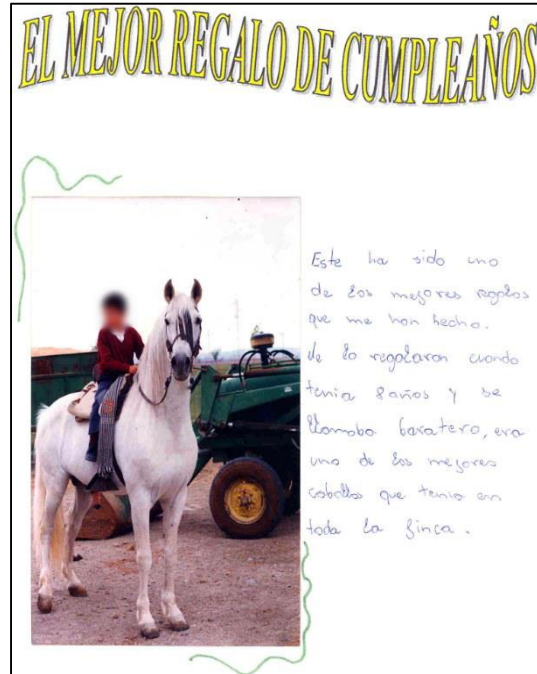 EL MEJOR REGALO DE CUMPLEAÑOS
Este ha sido uno
de los mejores regalos
que me han hecho.
Me lo regalaron cuando
tenia 8 años y se
llamaba baratero, era
uno de los mejores
caballos que tenia en
toda la finca.